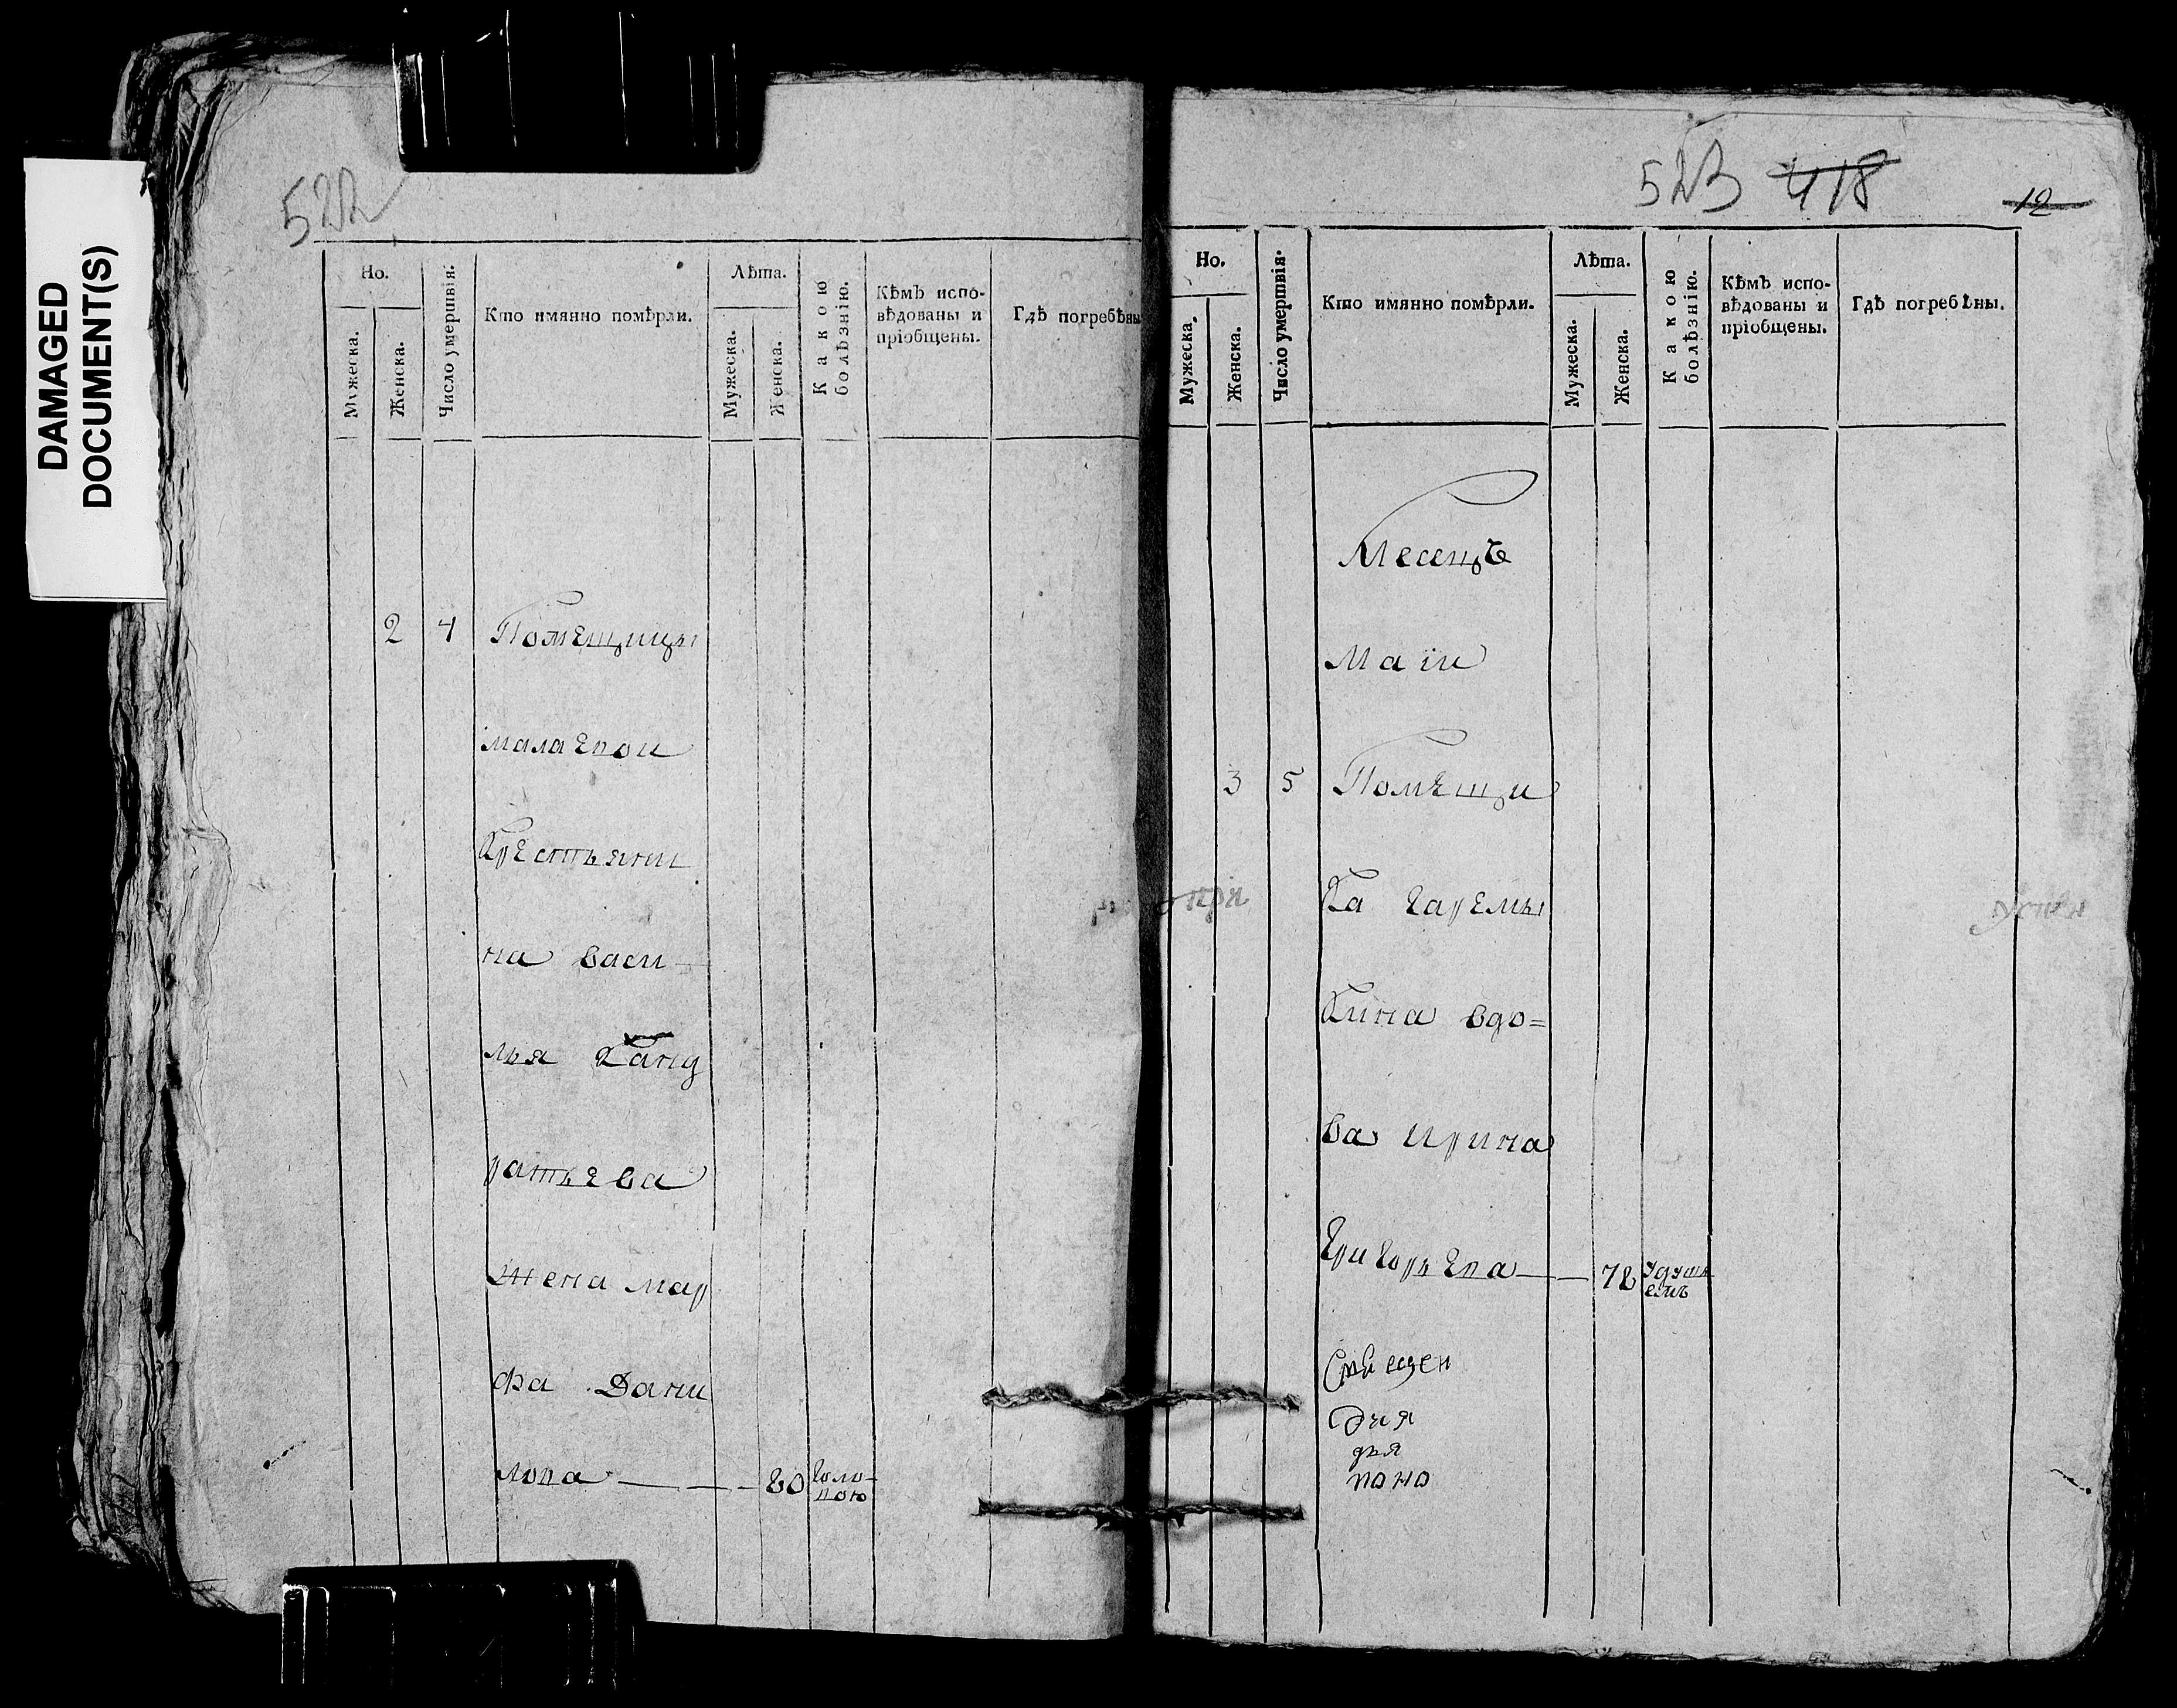 DAMAGED
DOCUMENT(S)
522
Но.
Мужеска.
Женска.
Число умершвія.
Кто имянно помѣрли.
Лѣта.
Мужеска.
Женска.
Какою
болѣзнію.
Кѣмъ испо-
вѣдованы и
пріобщены.
Гдѣ погребѣны
2 4 Помещицы
Крестьяни
на васи
лья Канд
ратьева
жена мар
фа Дани
лова — 80 голо-
вою
523 418
12
Но.
Мужеска.
Женска.
Число умершвія.
Кто имянно помѣрли.
Лѣта.
Мужеска.
Женска.
Какою
болѣзнію.
Кѣмъ испо-
вѣдованы и
пріобщены.
Гдѣ погребѣны.
Месецъ
Маіи
3 5 Помѣщи
Ка гаремы
Кина вдо=
ва ирина
григорьева — 78 удушь
емъ